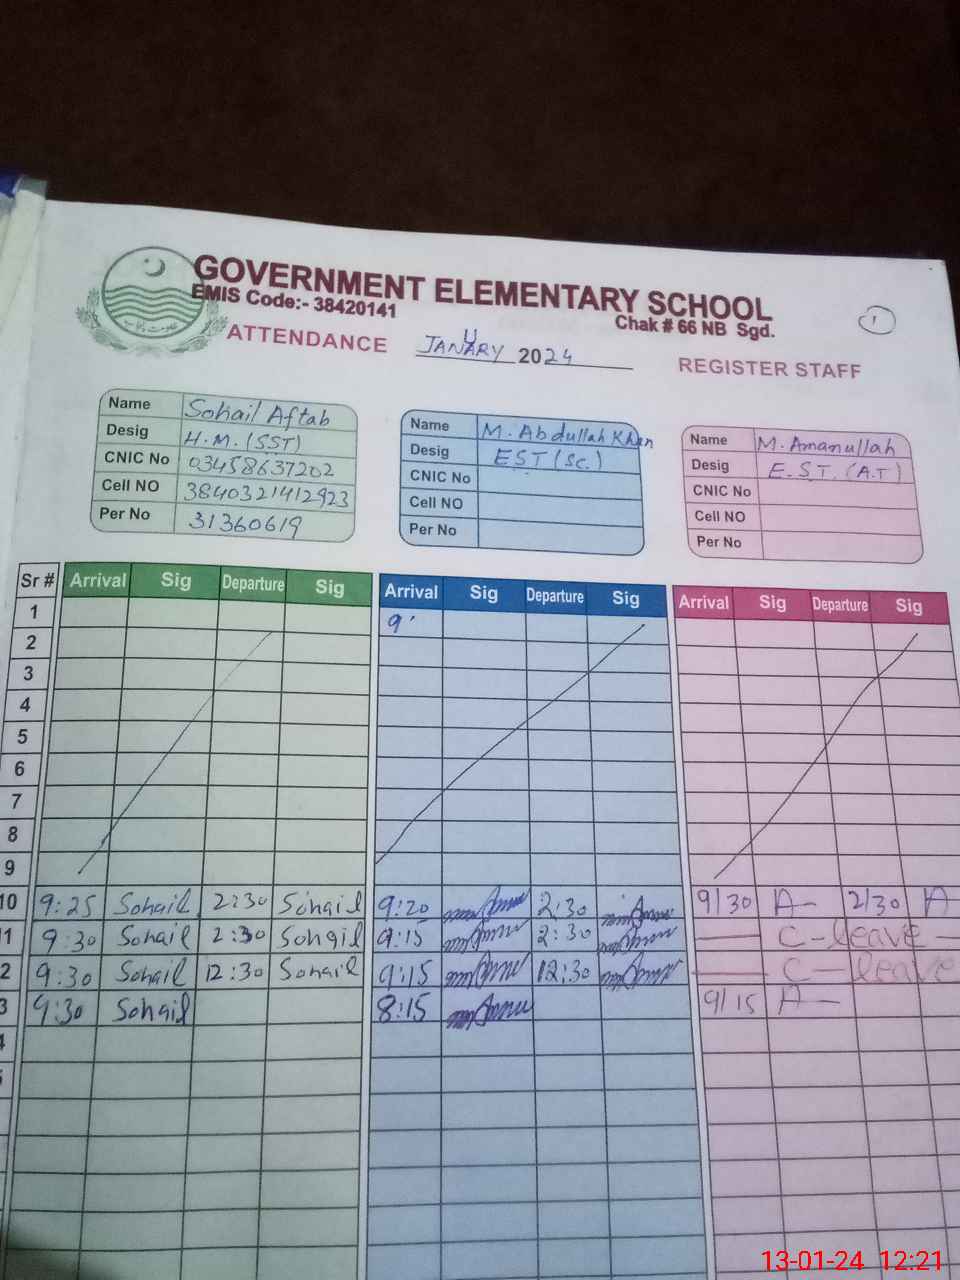 GOVERNMENT ELEMENTARY SCHOOL
EMIS Code:- 38420141
Chak # 66 NB Sgd.
1
ATTENDANCE JANUARY 2024 REGISTER STAFF
Name Sohail Aftab
Desig H.M.(SST)
CNIC No 03458637202
Cell NO 3840321412923
Per No 31360619
Name M. Abdullah Khan
Desig EST (Sc.)
CNIC No
Cell NO
Per No
Name M. Amanullah
Desig E.ST.(A.T)
CNIC No
Cell NO
Per No
Sr # Arrival Sig Departure Sig Arrival Sig Departure Sig Arrival Sig Departure Sig
1 9'
2
3
4
5
6
7
8
9
10 9:25 Sohail 2:30 Sohail 9:20 2:30 9/30 A- 2/30 A
1 9:30 Sohail 2:30 Sohail 9:15 2:30 C-leave-
2 9:30 Sohail 12:30 Sohail 9:15 12:30 C-leave
3 9:30 Sohail 8:15 9/15 A-
13-01-24 12:21